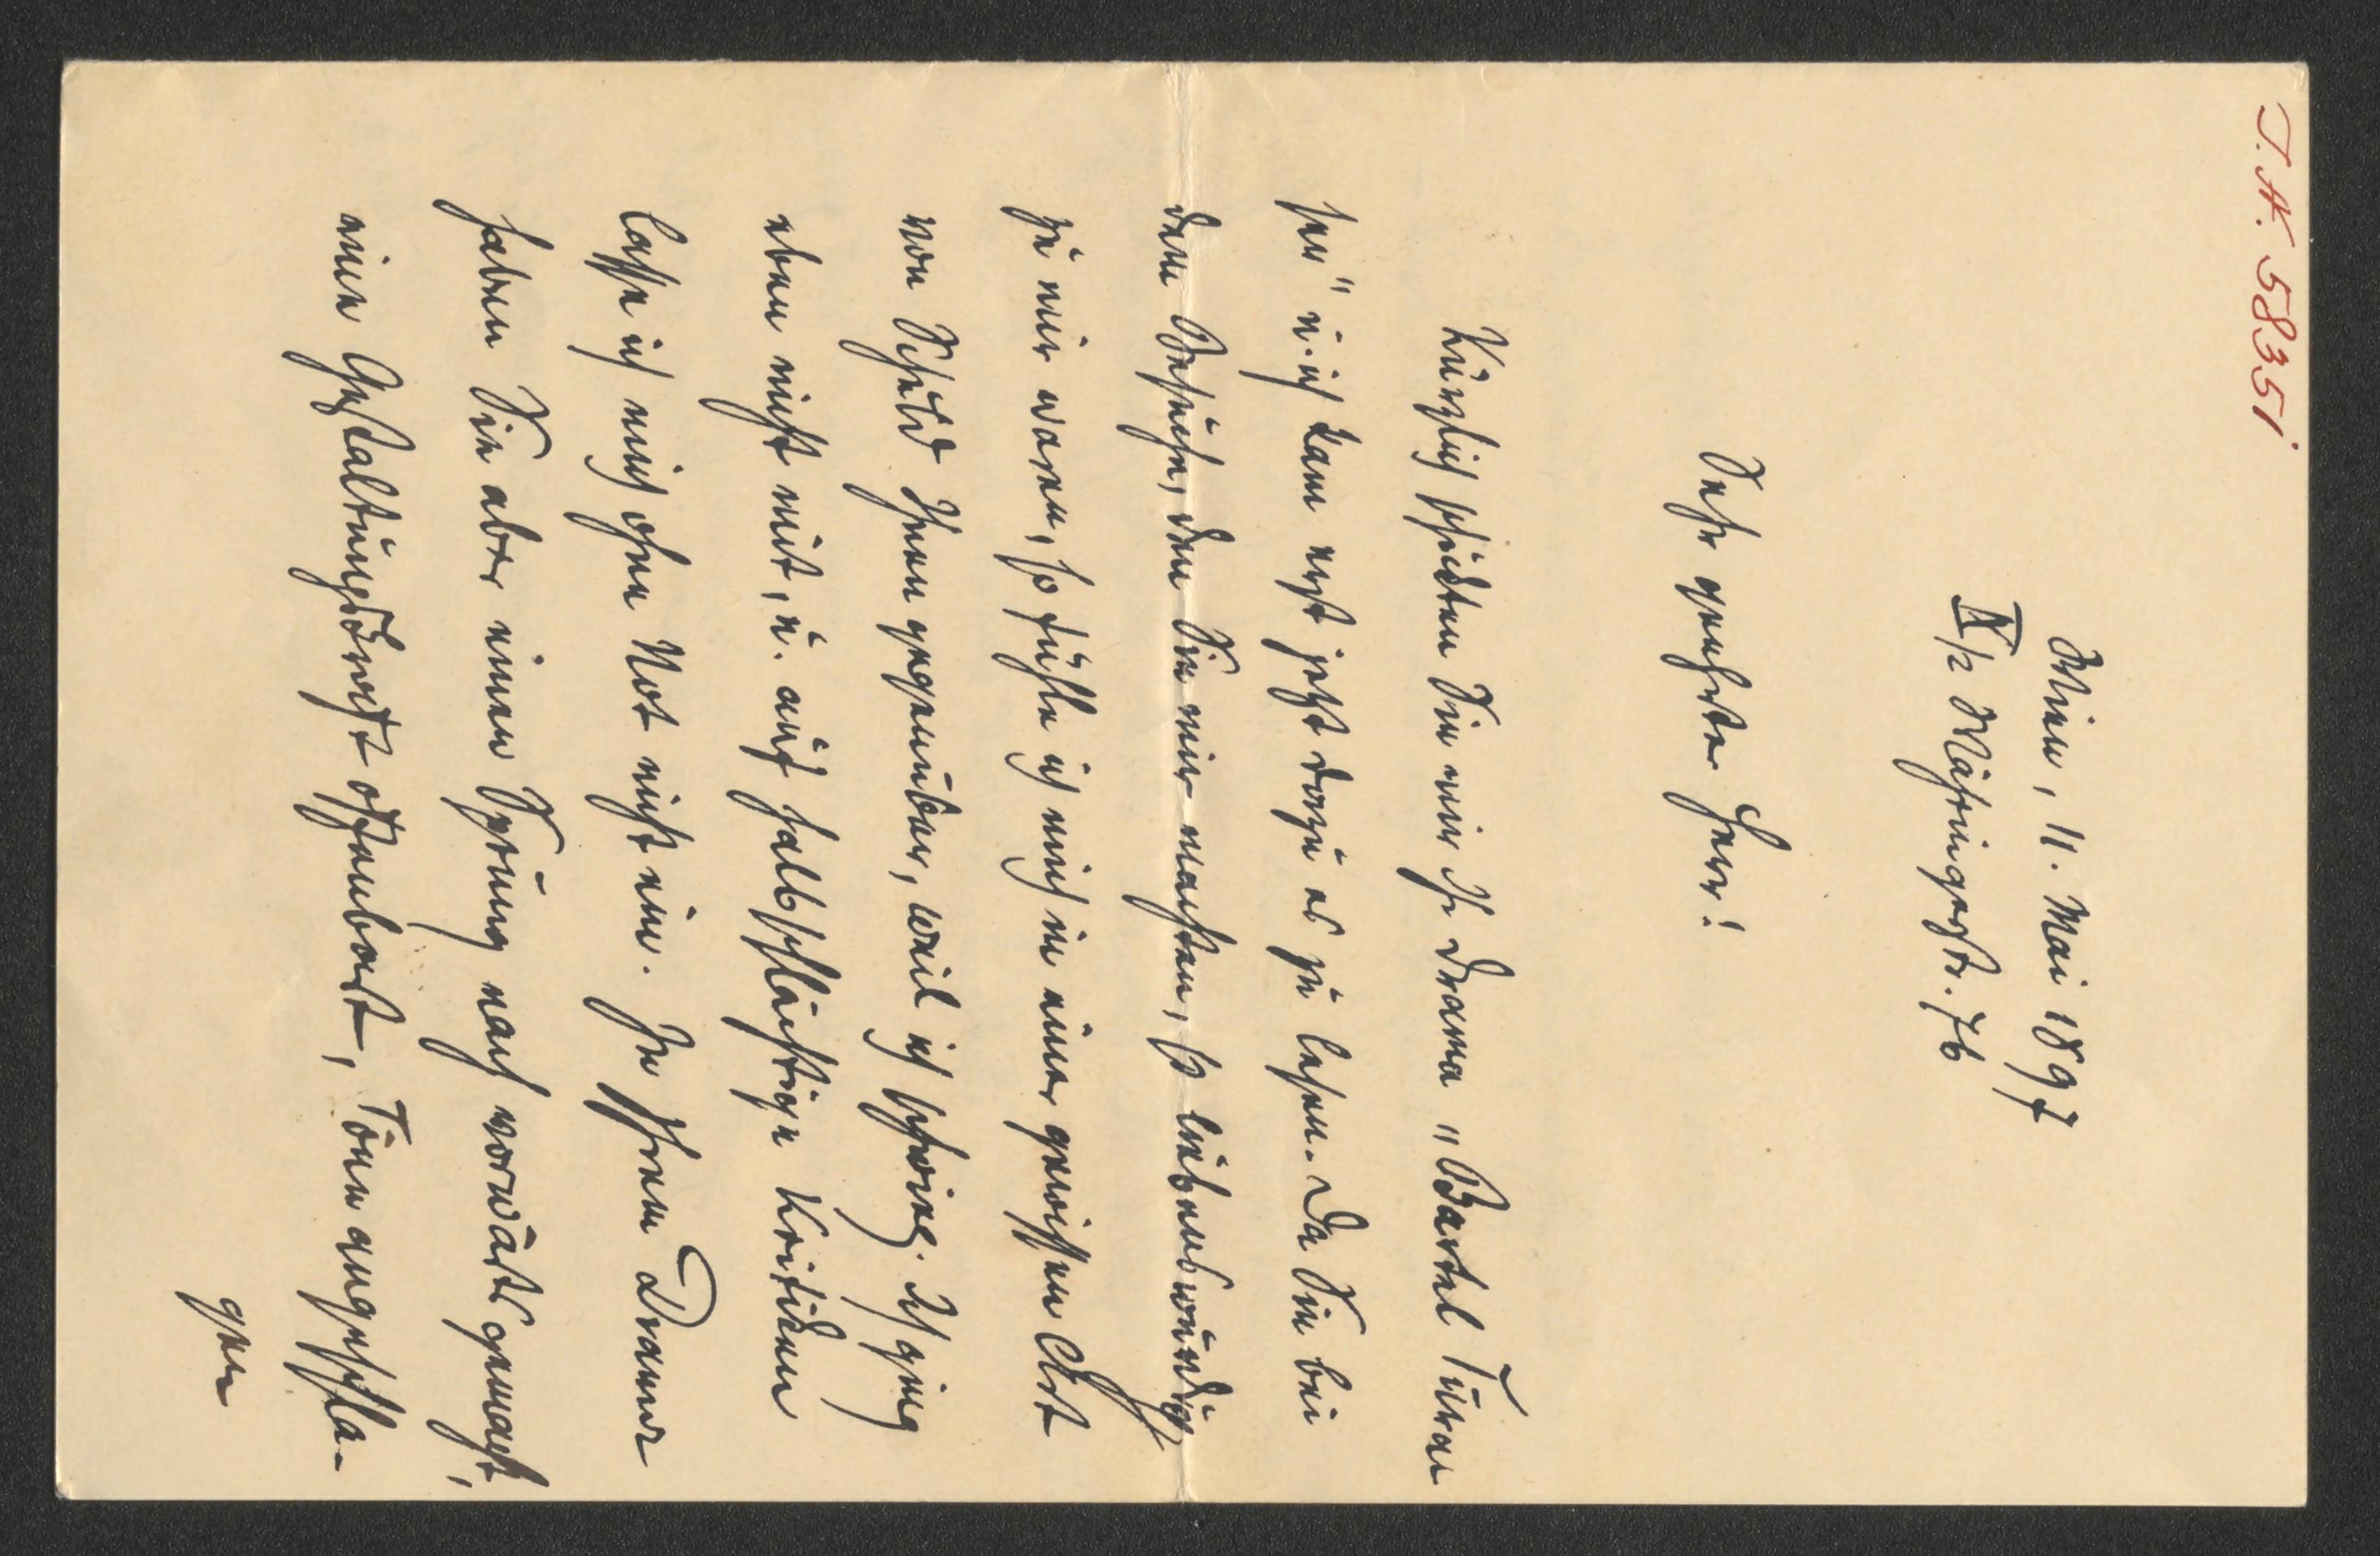 I.N. 58351
Wien, 11. Mai 1897
IX/2 Währingerstr. 76
Sehr geehrter Herr!
Kürzlich schickten Sie mir Ihr Drama „Bartel Turaser“ u. ich kam erst jetzt dazu es zu lesen. Da Sie bei
dem Besuche, den Sie mir machten, so liebenswürdig
zu mir waren, so fühle ich mich in einer gewissen Art
von Schuld Ihnen gegenüber, weil ich schwieg. Ich ging
eben nicht mit, u. auf halbschlächtige Kritiken
lasse ich mich ohne Not nicht ein. In Ihrem Drama
haben Sie aber einen Sprung nach vorwärts gemacht,
eine Gestaltungskraft offenbart, Töne angeschla-
gen